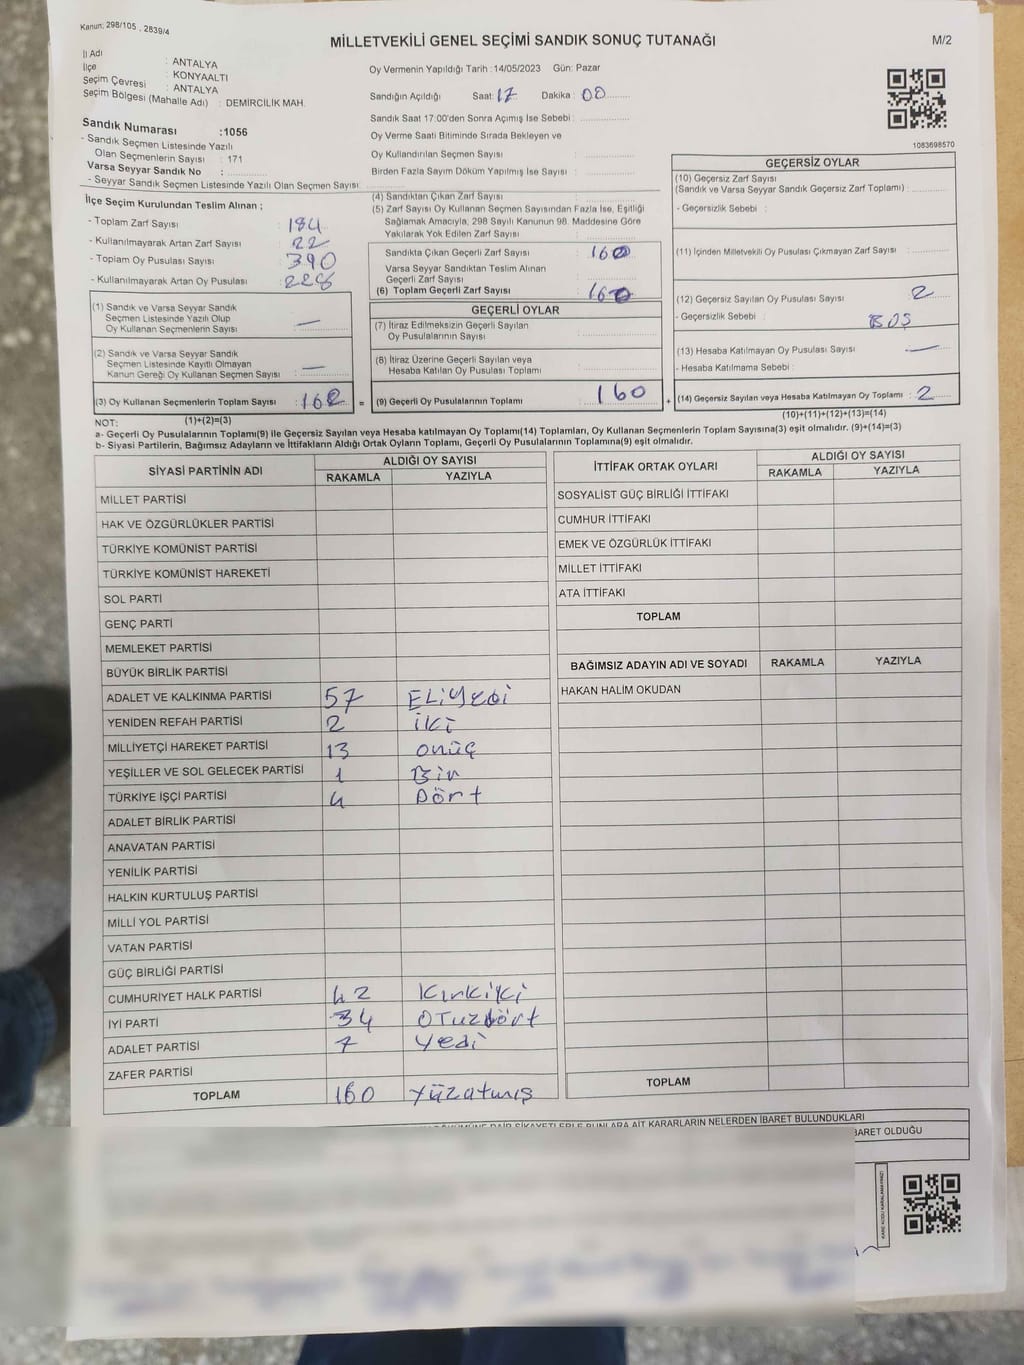 Kanun: 298/105 , 2839/4
MİLLETVEKİLİ GENEL SEÇİMİ SANDIK SONUÇ TUTANAĞI
M/2
İl Adı : ANTALYA
İlçe : KONYAALTI
Seçim Çevresi : ANTALYA
Seçim Bölgesi (Mahalle Adı) : DEMİRCİLİK MAH.
Oy Vermenin Yapıldığı Tarih :14/05/2023 Gün: Pazar
Sandığın Açıldığı Saat: 17 Dakika : 00
Sandık Saat 17:00'den Sonra Açımış İse Sebebi :
Oy Verme Saati Bitiminde Sırada Bekleyen ve
Oy Kullandırılan Seçmen Sayısı :
Birden Fazla Sayım Döküm Yapılmış İse Sayısı :
1083698570
Sandık Numarası :1056
- Sandık Seçmen Listesinde Yazılı
Olan Seçmenlerin Sayısı : 171
Varsa Seyyar Sandık No :
- Seyyar Sandık Seçmen Listesinde Yazılı Olan Seçmen Sayısı:
İlçe Seçim Kurulundan Teslim Alınan ;
- Toplam Zarf Sayısı : 184
- Kullanılmayarak Artan Zarf Sayısı : 22
- Toplam Oy Pusulası Sayısı : 390
- Kullanılmayarak Artan Oy Pusulası : 228
(1) Sandık ve Varsa Seyyar Sandık
Seçmen Listesinde Yazılı Olup
Oy Kullanan Seçmenlerin Sayısı : —
(2) Sandık ve Varsa Seyyar Sandık
Seçmen Listesinde Kayıtlı Olmayan
Kanun Gereği Oy Kullanan Seçmen Sayısı : —
(3) Oy Kullanan Seçmenlerin Toplam Sayısı : 162 =
(4) Sandıktan Çıkan Zarf Sayısı :
(5) Zarf Sayısı Oy Kullanan Seçmen Sayısından Fazla İse, Eşitliği
Sağlamak Amacıyla, 298 Sayılı Kanunun 98. Maddesine Göre
Yakılarak Yok Edilen Zarf Sayısı :
Sandıkta Çıkan Geçerli Zarf Sayısı : 160
Varsa Seyyar Sandıktan Teslim Alınan
Geçerli Zarf Sayısı :
(6) Toplam Geçerli Zarf Sayısı : 160
GEÇERLİ OYLAR
(7) İtiraz Edilmeksizin Geçerli Sayılan
Oy Pusulalarının Sayısı :
(8) İtiraz Üzerine Geçerli Sayılan veya
Hesaba Katılan Oy Pusulası Toplamı :
(9) Geçerli Oy Pusulalarının Toplamı : 160 +
GEÇERSİZ OYLAR
(10) Geçersiz Zarf Sayısı
(Sandık ve Varsa Seyyar Sandık Geçersiz Zarf Toplamı) :
- Geçersizlik Sebebi :
(11) İçinden Milletvekili Oy Pusulası Çıkmayan Zarf Sayısı :
(12) Geçersiz Sayılan Oy Pusulası Sayısı : 2
- Geçersizlik Sebebi : BOŞ
(13) Hesaba Katılmayan Oy Pusulası Sayısı : —
- Hesaba Katılmama Sebebi :
(14) Geçersiz Sayılan veya Hesaba Katılmayan Oy Toplamı : 2
NOT: (1)+(2)=(3)
(10)+(11)+(12)+(13)=(14)
a- Geçerli Oy Pusulalarının Toplamı(9) ile Geçersiz Sayılan veya hesaba katılmayan Oy Toplamı(14) Toplamları, Oy Kullanan Seçmenlerin Toplam Sayısına(3) eşit olmalıdır. (9)+(14)=(3)
b- Siyasi Partilerin, Bağımsız Adayların ve İttifakların Aldığı Ortak Oyların Toplamı, Geçerli Oy Pusulalarının Toplamına(9) eşit olmalıdır.
SİYASİ PARTİNİN ADI ALDIĞI OY SAYISI
RAKAMLA YAZIYLA
MİLLET PARTİSİ
HAK VE ÖZGÜRLÜKLER PARTİSİ
TÜRKİYE KOMÜNİST PARTİSİ
TÜRKİYE KOMÜNİST HAREKETİ
SOL PARTİ
GENÇ PARTİ
MEMLEKET PARTİSİ
BÜYÜK BİRLİK PARTİSİ
ADALET VE KALKINMA PARTİSİ 57 ELİYEDİ
YENİDEN REFAH PARTİSİ 2 İKİ
MİLLİYETÇİ HAREKET PARTİSİ 13 onüç
YEŞİLLER VE SOL GELECEK PARTİSİ 1 Bir
TÜRKİYE İŞÇİ PARTİSİ 4 Dört
ADALET BİRLİK PARTİSİ
ANAVATAN PARTİSİ
YENİLİK PARTİSİ
HALKIN KURTULUŞ PARTİSİ
MİLLİ YOL PARTİSİ
VATAN PARTİSİ
GÜÇ BİRLİĞİ PARTİSİ
CUMHURİYET HALK PARTİSİ 42 Kırkiki
İYİ PARTİ 34 OTuzdört
ADALET PARTİSİ 7 yedi
ZAFER PARTİSİ
TOPLAM 160 yüzatmış
İTTİFAK ORTAK OYLARI ALDIĞI OY SAYISI
RAKAMLA YAZIYLA
SOSYALİST GÜÇ BİRLİĞİ İTTİFAKI
CUMHUR İTTİFAKI
EMEK VE ÖZGÜRLÜK İTTİFAKI
MİLLET İTTİFAKI
ATA İTTİFAKI
TOPLAM
BAĞIMSIZ ADAYIN ADI VE SOYADI RAKAMLA YAZIYLA
HAKAN HALİM OKUDAN
TOPLAM
ŞİKAYETLERLE BUNLARA AİT KARARLARIN NELERDEN İBARET BULUNDUKLARI
BARET OLDUĞU